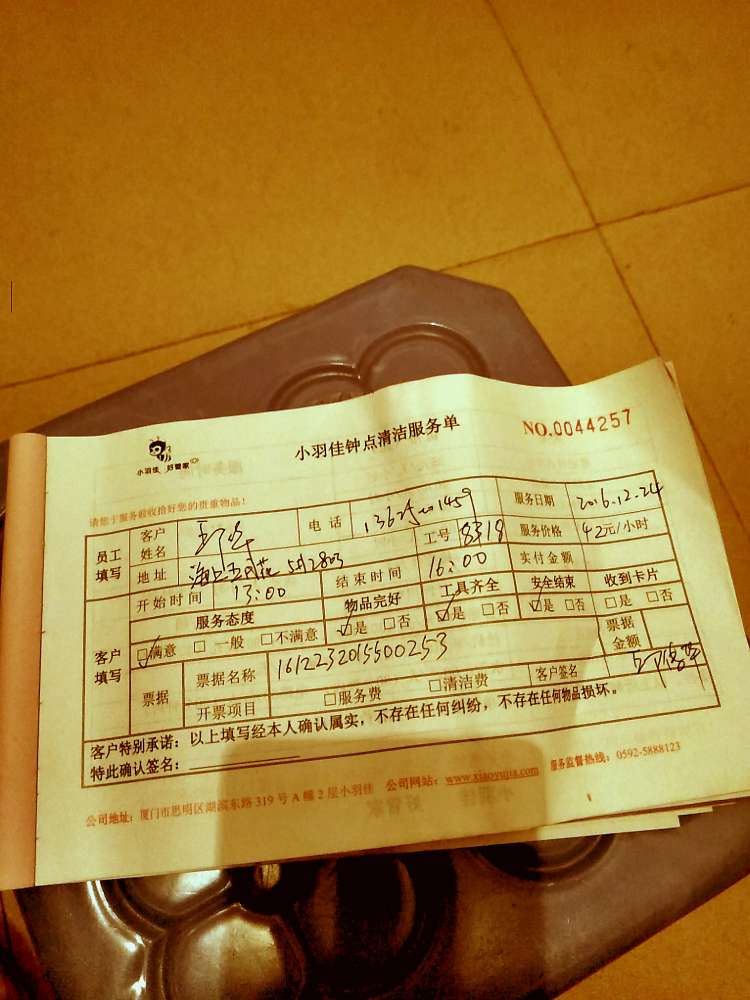 小羽佳 好管家
小羽佳钟点清洁服务单
NO.0044257
请您于服务前收拾好您的贵重物品!
员工填写 客户姓名 电话 服务日期 2016.12.24
地址 工号 8518 服务价格 42元/小时
开始时间 13:00 结束时间 16:00 实付金额
客户填写 服务态度 物品完好 工具齐全 安全结束 收到卡片
☑满意 □一般 □不满意 ☑是 □否 ☑是 □否 ☑是 □否 □是 □否
票据 票据名称 1612232015500253 票据金额
开票项目 □服务费 □清洁费 客户签名
客户特别承诺:以上填写经本人确认属实,不存在任何纠纷,不存在任何物品损坏。
特此确认签名:
公司地址:厦门市思明区湖滨东路319号A幢2层小羽佳 公司网站:www.xiaoyujia.com 服务监督热线:0592-5888123